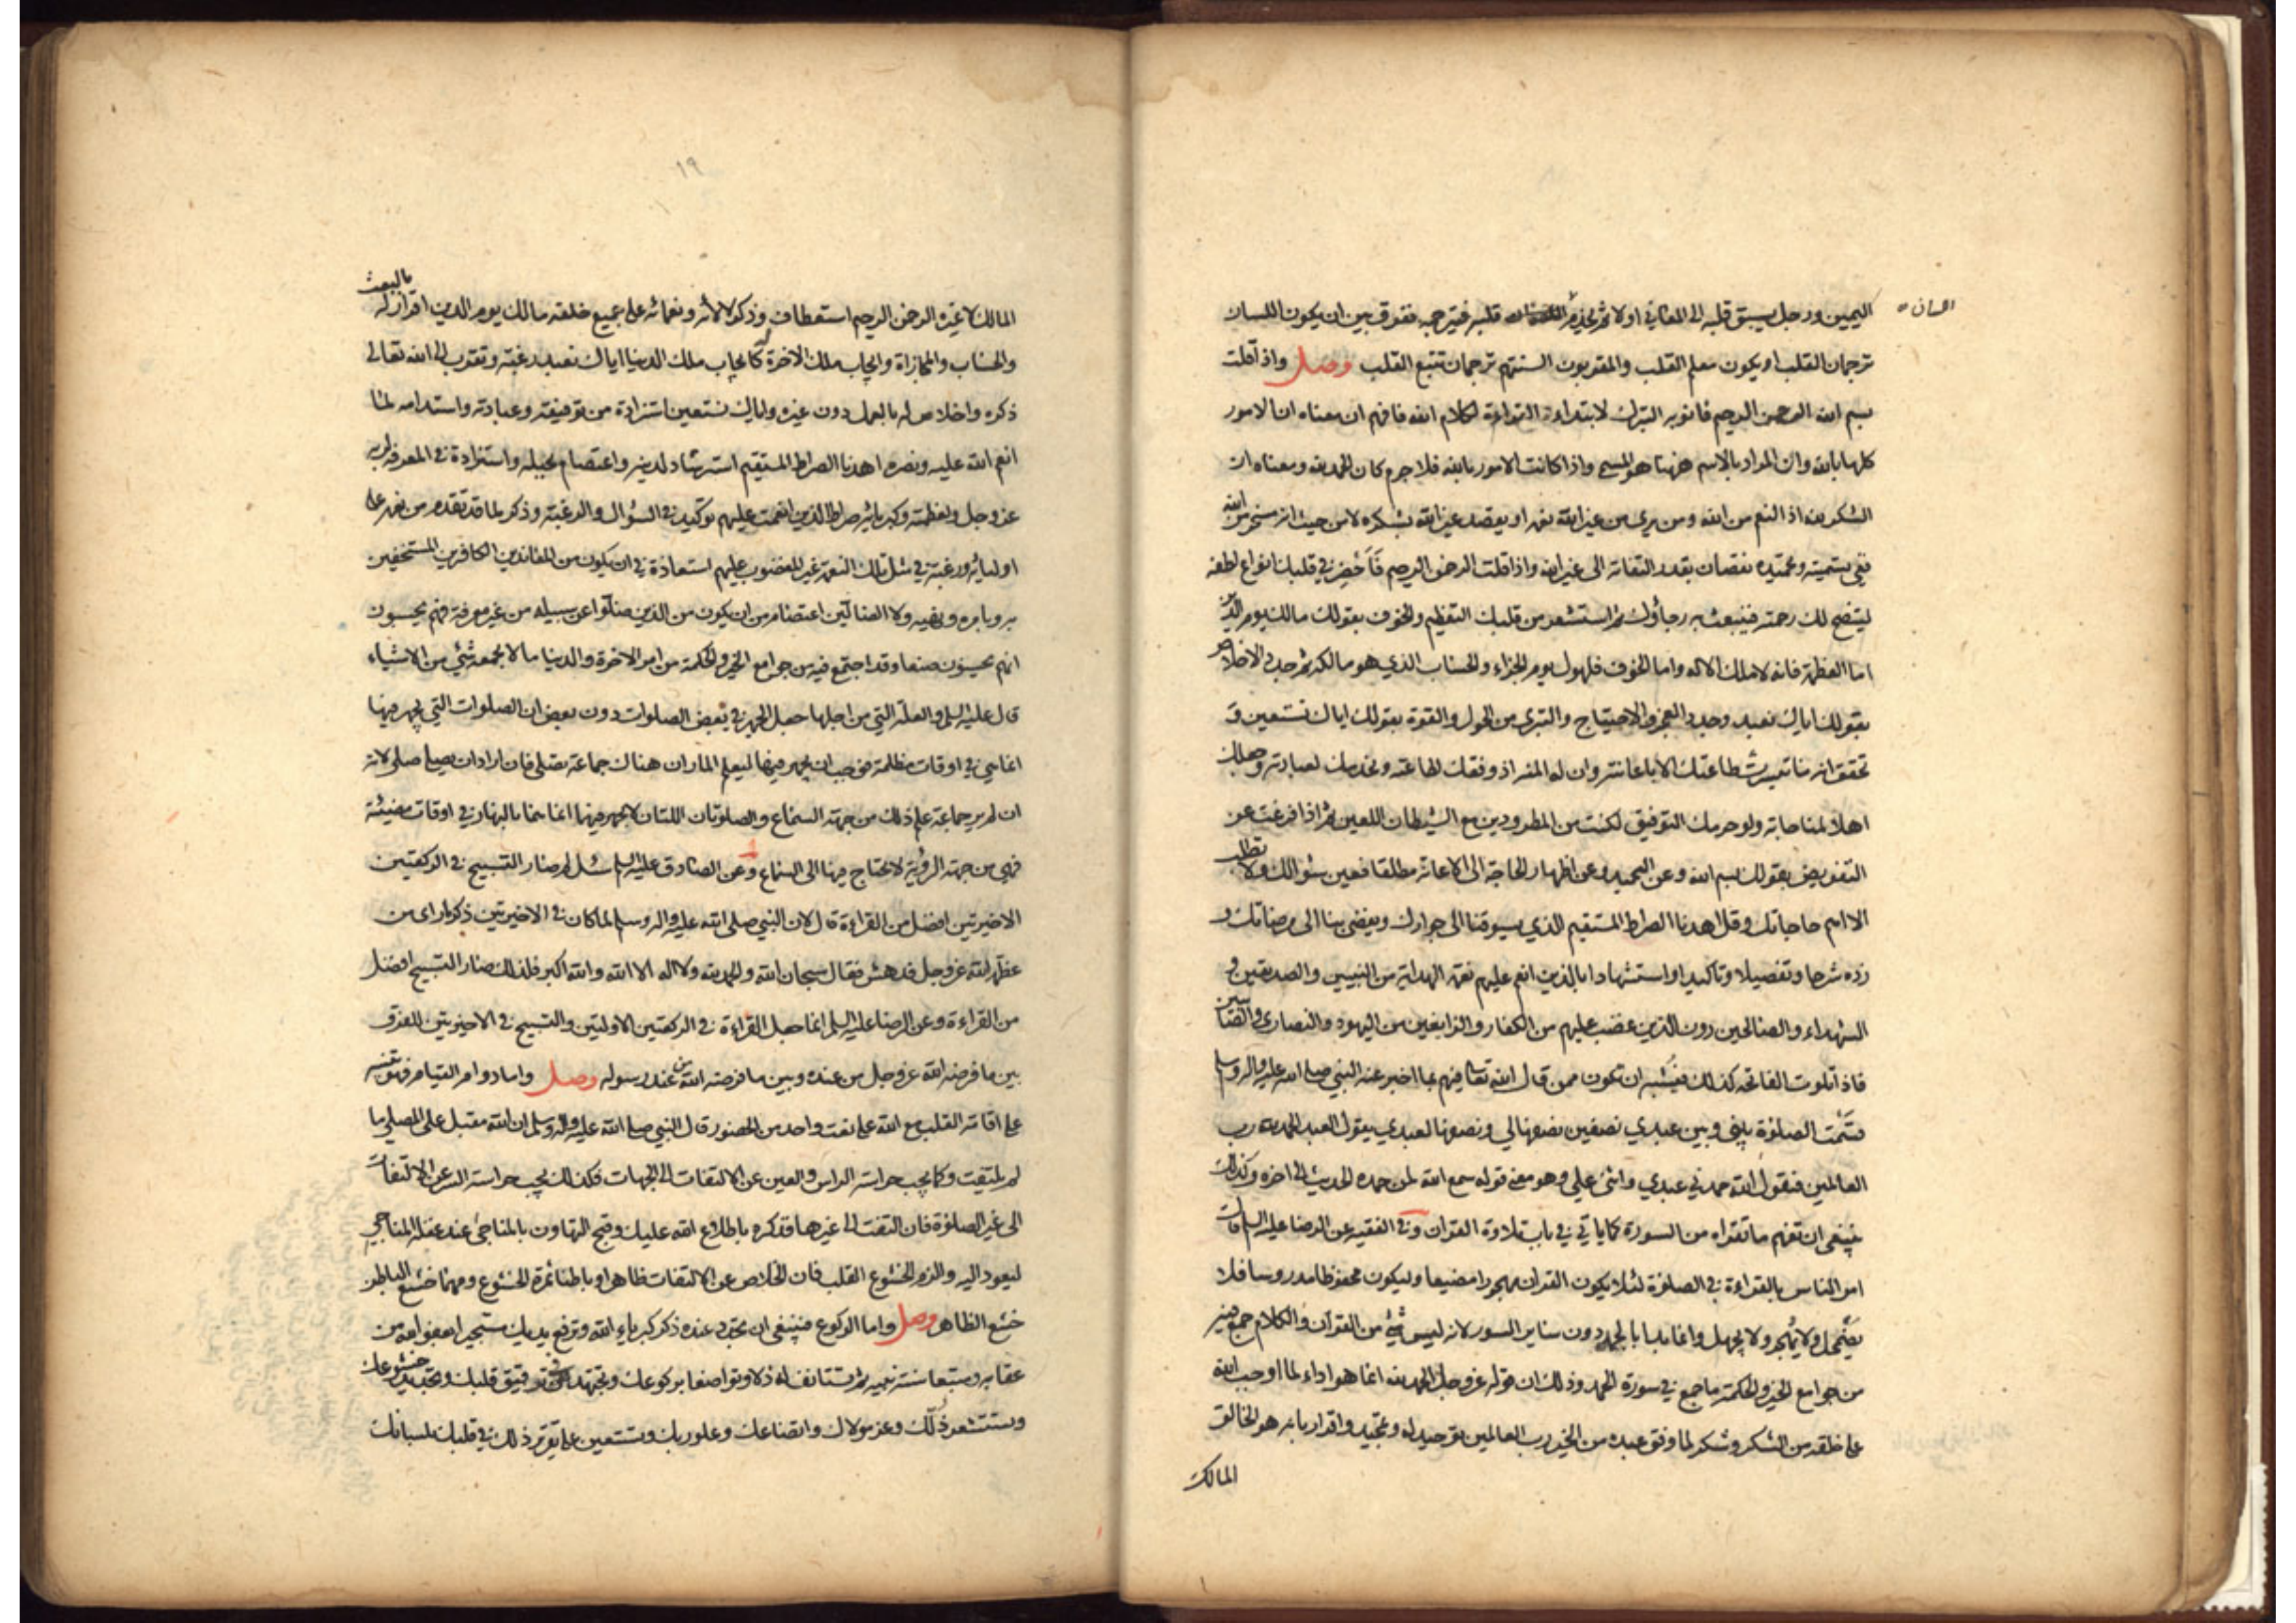 اليمين ورجل يسبق قلبه الى المعاني اولا ثم يخدم قلبه فيترجمه ففرق بين ان يكون اللسان
اللسان
ترجمان القلب او يكون معلم القلب والمقربون السنتهم ترجمان تتبع القلب وصل واذا قلت
بسم الله الرحمن الرحيم فانو به التبرك لابتداء القراءة لكلام الله فافهم ان معناه ان الامور
كلها بالله وان المراد بالاسم ههنا هو المسمى واذا كانت الامور بالله فلا جرم كان الحمد لله ومعناه ان
الشكر لله اذ النعم من الله ومن يرى من غير الله نعمة او يقصد غير الله بشكره لا من حيث انه مسخر من الله
ففي تسميته وتحميده نقصان بقدر التفاته الى غير الله واذا قلت الرحمن الرحيم فاحضر في قلبك انواع لطفه
ليتضح لك رحمته فينبعث به رجاؤك ثم استشعر من قلبك التعظيم والخوف بقولك مالك يوم الدين
اما العظمة فانه لا ملك الا له واما الخوف فلهول يوم الجزاء والحساب الذي هو مالكه ثم جدد الاخلاص
بقولك اياك نعبد وجدد العجز والاحتياج والتبري من الحول والقوة بقولك اياك نستعين و
تحقق انه ما تيسرت طاعتك الا باعانته وان له المنة اذ وفقك لطاعته وتخدمك لعبادته وجعلك
اهلا لمناجاته ولو حرمك التوفيق لكنت من المطرودين مع الشيطان اللعين ثم اذا فرغت عن
التفويض بقولك بسم الله وعن التحميد وعن اظهار الحاجة الى الاعانة مطلقا فعين سؤالك ولا تطلب
الا اهم حاجاتك وقل اهدنا الصراط المستقيم الذي يسوقنا الى جوارك ويفضي بنا الى مرضاتك و
زده شرحا وتفصيلا وتاكيدا واستشهادا بالذين انعم عليهم نعمة الهداية من النبيين والصديقين و
الشهداء والصالحين دون الذين غضب عليهم من الكفار والزايغين من اليهود والنصارى والصابئين
فاذا تلوت الفاتحة كذلك فيشبه ان تكون ممن قال الله تعالى فيهم بما اخبر عنه النبي صلى الله عليه واله وسلم
قسمت الصلوة بيني وبين عبدي نصفين نصفها لي ونصفها لعبدي يقول العبد الحمد لله رب
العالمين فيقول الله حمدني عبدي واثنى علي وهو معنى قوله سمع الله لمن حمده الحديث الى اخره وكذلك
ينبغي ان تفهم ما تقراه من السورة كما ياتي في باب تلاوة القران وفي الفقيه عن الرضا عليه السلام قال
امر الناس بالقراءة في الصلوة لئلا يكون القران مهجورا مضيعا وليكون محفوظا مدروسا فلا
يضمحل ولا يهجر ولا يجهل وانما بدا بالحمد دون ساير السور لانه ليس شئ من القرآن والكلام جمع فيه
من جوامع الخير والحكمة ما جمع في سورة الحمد وذلك ان قوله عز وجل الحمد لله انما هو اداء لما اوجب الله
على خلقه من الشكر وشكر لما وفق عبده من الخير رب العالمين توحيد له وتمجيد واقرار بانه هو الخالق
المالك
١٩
المالك لا غيره الرحمن الرحيم استعطاف وذكر لالائه ونعمائه على جميع خلقه مالك يوم الدين اقرار له بالبعث
والحساب والمجازاة وايجاب ملك الاخرة له كايجاب ملك الدنيا اياك نعبد رغبة وتقرب الى الله تعالى
ذكره واخلاص له بالعمل دون غيره واياك نستعين استزادة من توفيقه وعبادته واستدامه لما
انعم الله عليه ونصره اهدنا الصراط المستقيم استرشاد لدينه واعتصام بحبله واستزادة في المعرفة لربه
عز وجل ولعظمته وكبريائه صراط الذين انعمت عليهم توكيد في السؤال والرغبة وذكر لما قد تقدم من نعمه على
اوليائه ورغبة في مثل تلك النعمة غير المغضوب عليهم استعاذة في ان يكون من المعاندين الكافرين المستخفين
به وبامره ونهيه ولا الضالين اعتصام من ان يكون من الذين ضلوا عن سبيله من غير معرفة فهم يحسبون
انهم يحسنون صنعا وقد اجتمع فيه من جوامع الخير والحكمة من امر الاخرة والدنيا ما لا يجمعه شئ من الاشياء
قال عليه السلم والعلة التي من اجلها جعل الجهر في بعض الصلوات دون بعض ان الصلوات التي يجهر فيها
انما هي في اوقات مظلمة فوجب ان يجهر فيها ليعلم المار ان هناك جماعة تصلي فان اراد ان يصلي صلى لانه
ان لم ير جماعة علم ذلك من جهة السماع والصلوتان اللتان لا يجهر فيهما انما هما بالنهار في اوقات مضيئة
فهي من جهة الرؤية لا تحتاج فيها الى السماع وعن الصادق عليه السلم سئل لم صار التسبيح في الركعتين
الاخيرتين افضل من القراءة قال لان النبي صلى الله عليه واله وسلم لما كان في الاخيرتين ذكر ما راى من
عظمة الله عز وجل فدهش فقال سبحان الله والحمد لله ولا اله الا الله والله اكبر فلذلك صار التسبيح افضل
من القراءة وعن الرضا عليه السلم انما جعل القراءة في الركعتين الاوليتين والتسبيح في الاخيرتين للفرق
بين ما فرضه الله عز وجل من عنده وبين ما فرضه الله من عند رسوله وصل واما دوام القيام فهو تنبيه
على اقامة القلب مع الله على نعت واحد من الحضور قال النبي صلى الله عليه واله وسلم ان الله مقبل على المصلي ما
لم يلتفت وكما يجب حراسة الراس والعين عن الالتفات الى الجهات فكذلك يجب حراسة السر عن الالتفات
الى غير الصلوة فان التفت الى غيرها فذكره باطلاع الله عليك وقبح التهاون بالمناجى عند غفلة المناجي
ليعود اليه والزم الخشوع القلب فان الخلاص عن الالتفات ظاهرا وباطنا ثمرة الخشوع ومهما خشع الباطن
خشع الظاهر وصل واما الركوع فينبغي ان تجدد عنده ذكر كبرياء الله وترفع يديك مستجيرا بعفو الله من
عقابه ومتبعا سنة نبيه ثم تستانف له ذلا وتواضعا بركوعك وتجتهد في ترقيق قلبك وتجديد خشوعك
وتستشعر ذلك وعز مولاك واتضاعك وعلو ربك وتستعين على تقرير ذلك في قلبك بلسانك